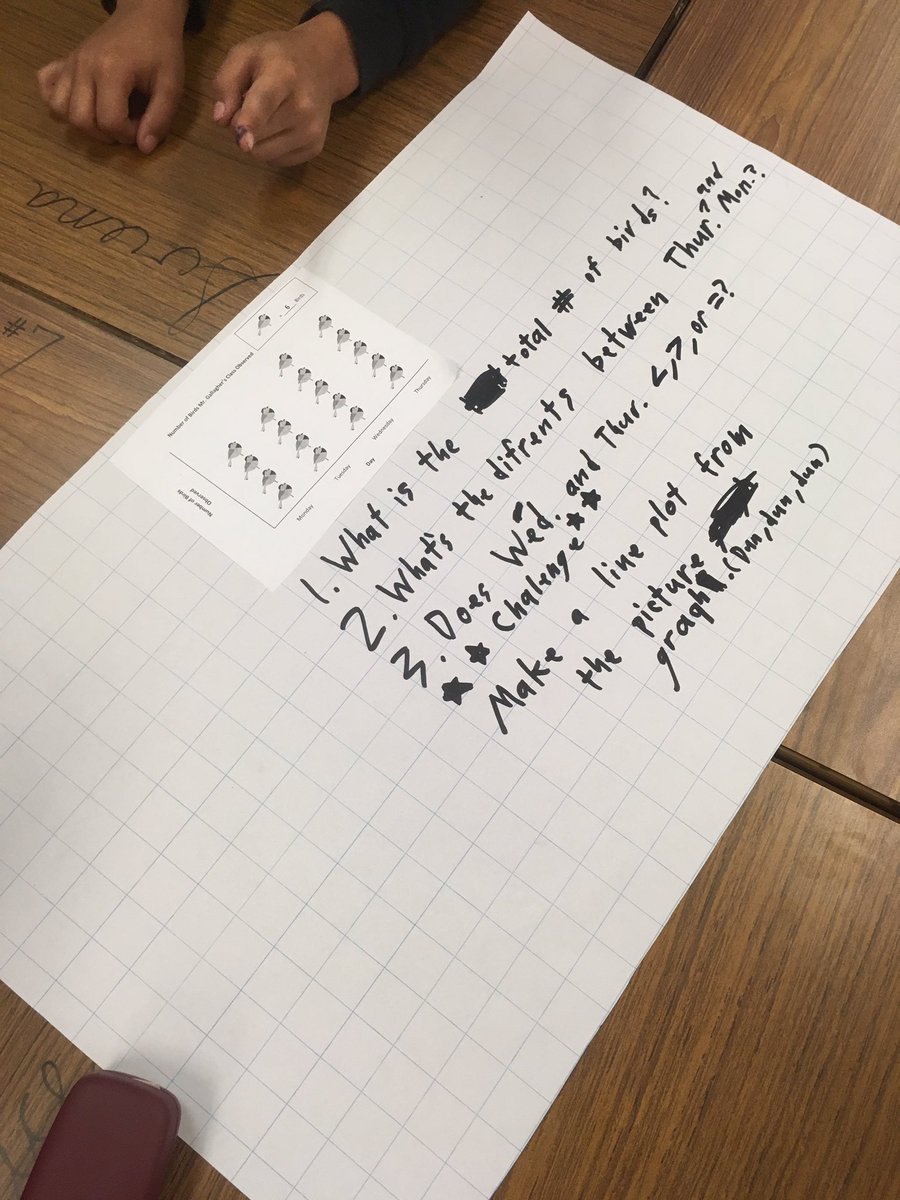 Number of Birds Mr. Gallagher's Class Observed
= 6 Birds
Number of Birds
Observed
Monday
Tuesday
Wednesday
Thursday
Day
1. What is the total # of birds?
2. What's the difrents between Thur. and Mon.?
3. Does Wed. and Thur. <,>, or =?
Chalenge
Make a line plot from
the picture
graph. (Dun, dun, dun)
#7